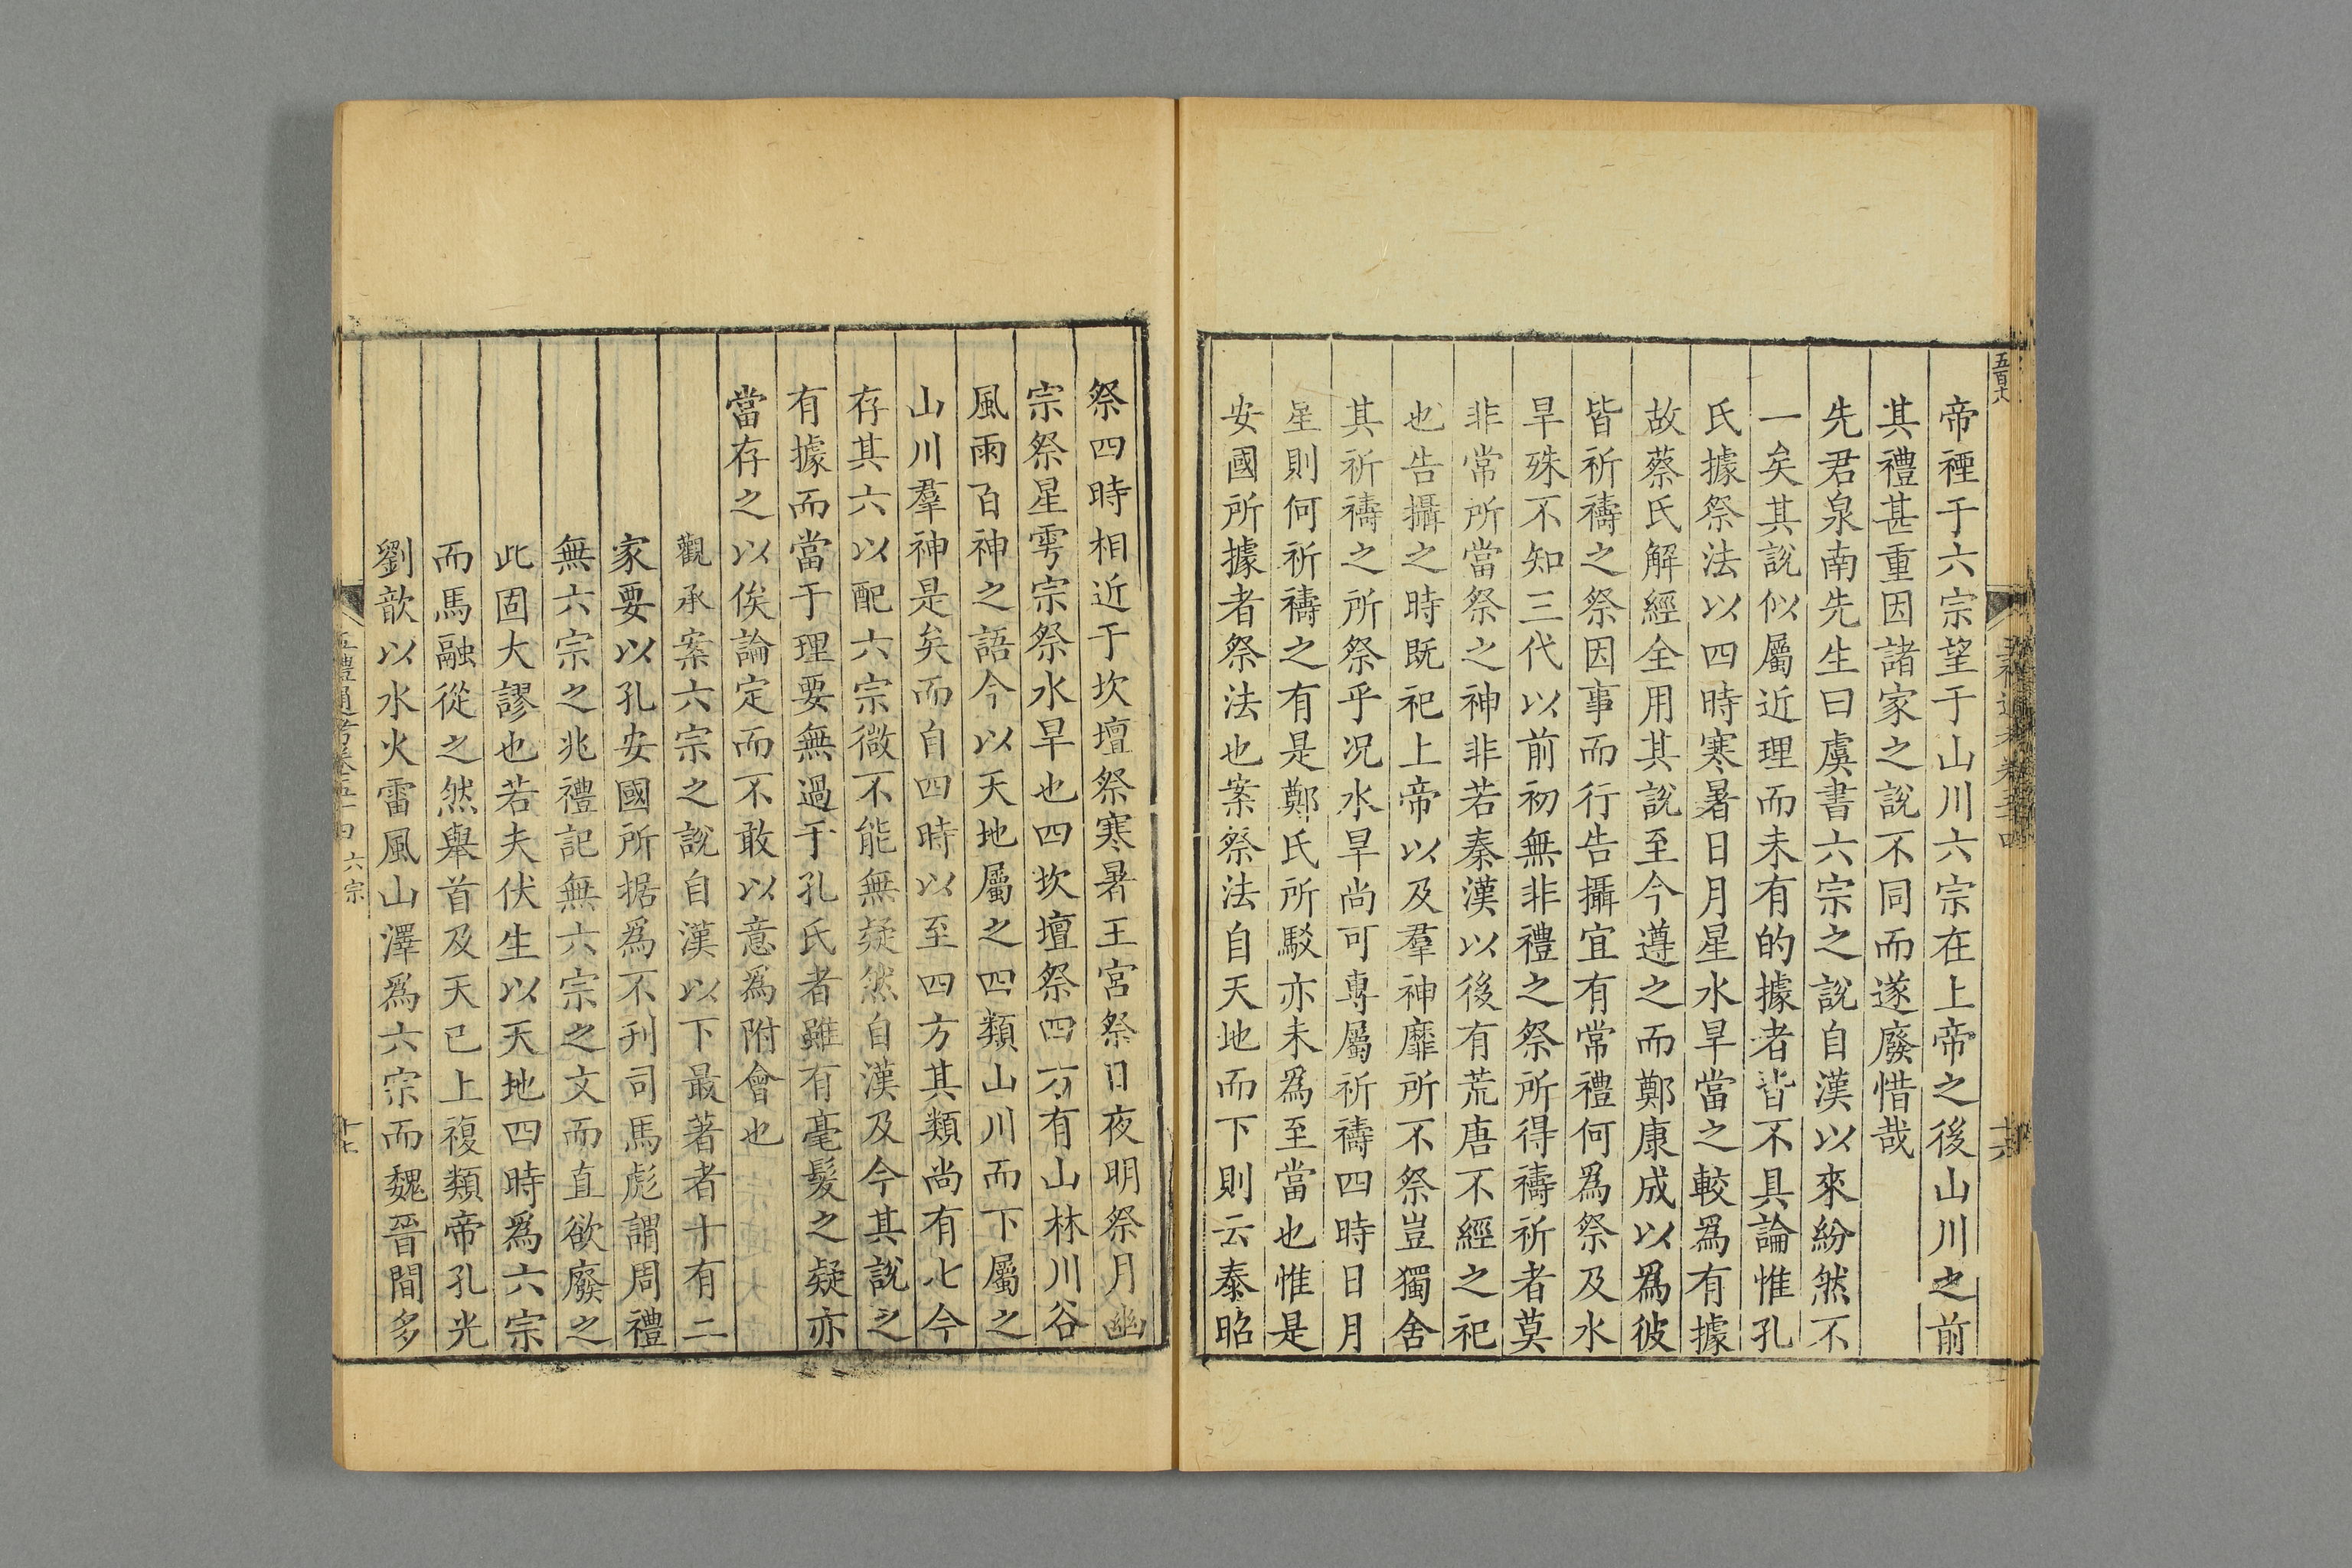 五百六
帝禋于六宗望于山川六宗在上帝之後山川之前
其禮甚重因諸家之說不同而遂廢惜哉
先君泉南先生曰虞書六宗之說自漢以來紛然不
一矣其說似屬近理而未有的據者皆不具論惟孔
氏據祭法以四時寒暑日月星水旱當之較爲有據
故蔡氏解經全用其說至今遵之而鄭康成以爲彼
皆祈禱之祭因事而行告攝宜有常禮何爲祭及水
旱殊不知三代以前初無非禮之祭所得禱祈者莫
非常所當祭之神非若秦漢以後有荒唐不經之祀
也告攝之時既祀上帝以及羣神靡所不祭豈獨舍
其祈禱之所祭乎况水旱尚可專屬祈禱四時日月
星則何祈禱之有是鄭氏所駁亦未爲至當也惟是
安國所據者祭法也案祭法自天地而下則云泰昭
祭四時相近于坎壇祭寒暑王宮祭日夜明祭月幽
宗祭星雩宗祭水旱也四坎壇祭四方有山林川谷
風雨百神之語今以天地屬之四類山川而下屬之
山川羣神是矣而自四時以至四方其類尚有七今
存其六以配六宗微不能無疑然自漢及今其說之
有據而當于理要無過于孔氏者雖有毫髮之疑亦
當存之以俟論定而不敢以意爲附會也
觀承案六宗之說自漢以下最著者十有二
家要以孔安國所据爲不刊司馬彪謂周禮
無六宗之兆禮記無六宗之文而直欲廢之
此固大謬也若夫伏生以天地四時爲六宗
而馬融從之然舉首及天已上複類帝孔光
劉歆以水火雷風山澤爲六宗而魏晉間多
五禮通考卷五十四 六宗 十七